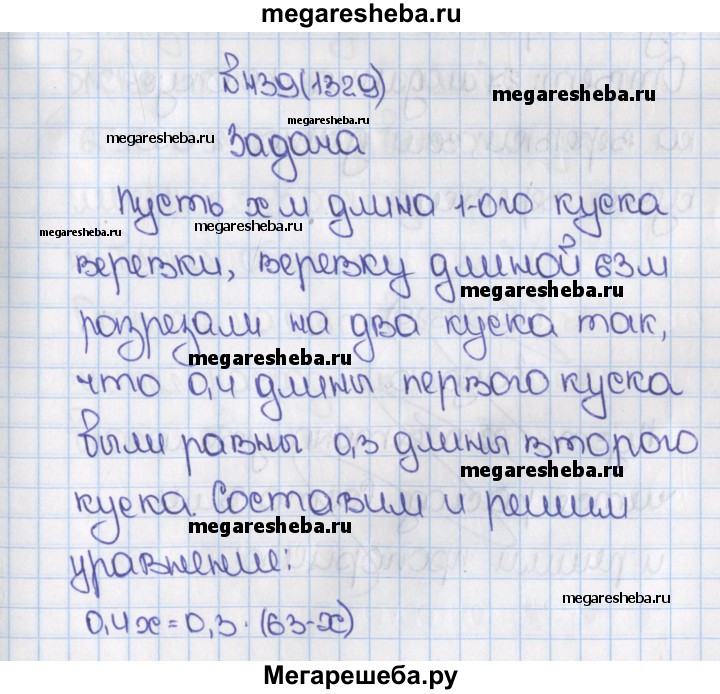 megaresheba.ru
в 439(1329)
megaresheba.ru
megaresheba.ru
megaresheba.ru
Задача
Пусть x м длина 1-ого куска
megaresheba.ru
megaresheba.ru
веревки, веревку длиной 63м
megaresheba.ru
разрезали на два куска так,
megaresheba.ru
что 0,4 длины первого куска
были равны 0,3 длины второго
megaresheba.ru
куска. Составим и решим
megaresheba.ru
уравнение:
megaresheba.ru
0,4x=0,3·(63-x)
Мегарешеба.ру